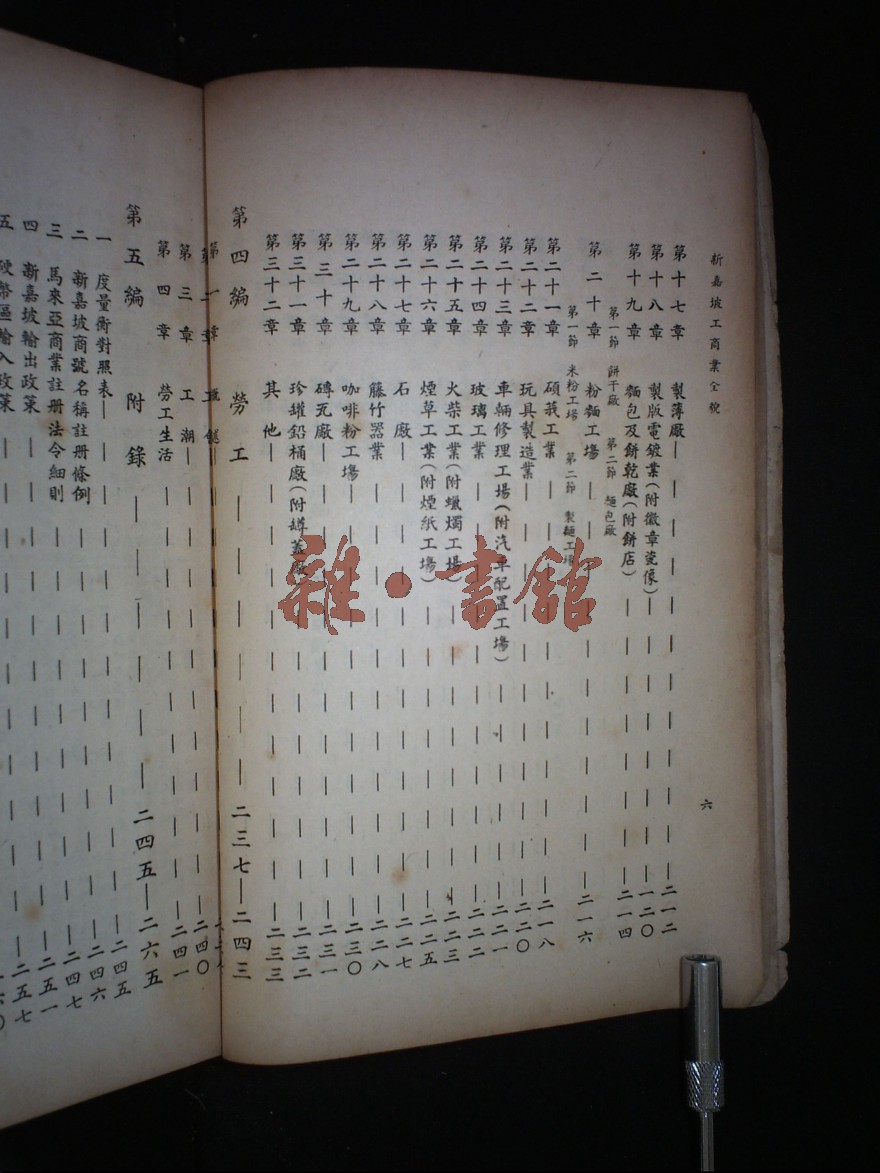 新嘉坡工商業全貌
六
第十七章 製薄廠 二一二
第十八章 製版電鍍業(附徽章瓷像) 一二〇
第十九章 麵包及餅乾廠(附餅店) 二一四
第一節 餅干廠 第二節 麵包廠
第二十章 粉麵工場 二一六
第一節 米粉工場 第二節 製麵工場
第二十一章 碩莪工業 二一八
第二十二章 玩具製造業 二二〇
第二十三章 車輛修理工場(附汽車配置工場) 二二一
第二十四章 玻璃工業 二二二
第二十五章 火柴工業(附蠟燭工場) 二二三
第二十六章 煙草工業(附煙紙工場) 二二五
第二十七章 石廠 二二七
第二十八章 籐竹器業 二二八
第二十九章 咖啡粉工場 二三〇
第三十章 磚瓦廠 二三一
第三十一章 珍罐鉛桶廠(附罇蓋廠) 二三二
第三十二章 其他 二三三
第四編 勞工 二三七—二四三
第一章
第三章 工潮 二四〇
第四章 勞工生活 二四一
第五編 附錄 二四五—二六五
一 度量衡對照表 二四五
二 新嘉坡商號名稱註册條例 二四六
三 馬來亞商業註册法令細則 二四七
四 新嘉坡輸出政策 二五一
五 硬幣區輸入政策 二五七
雜·書館